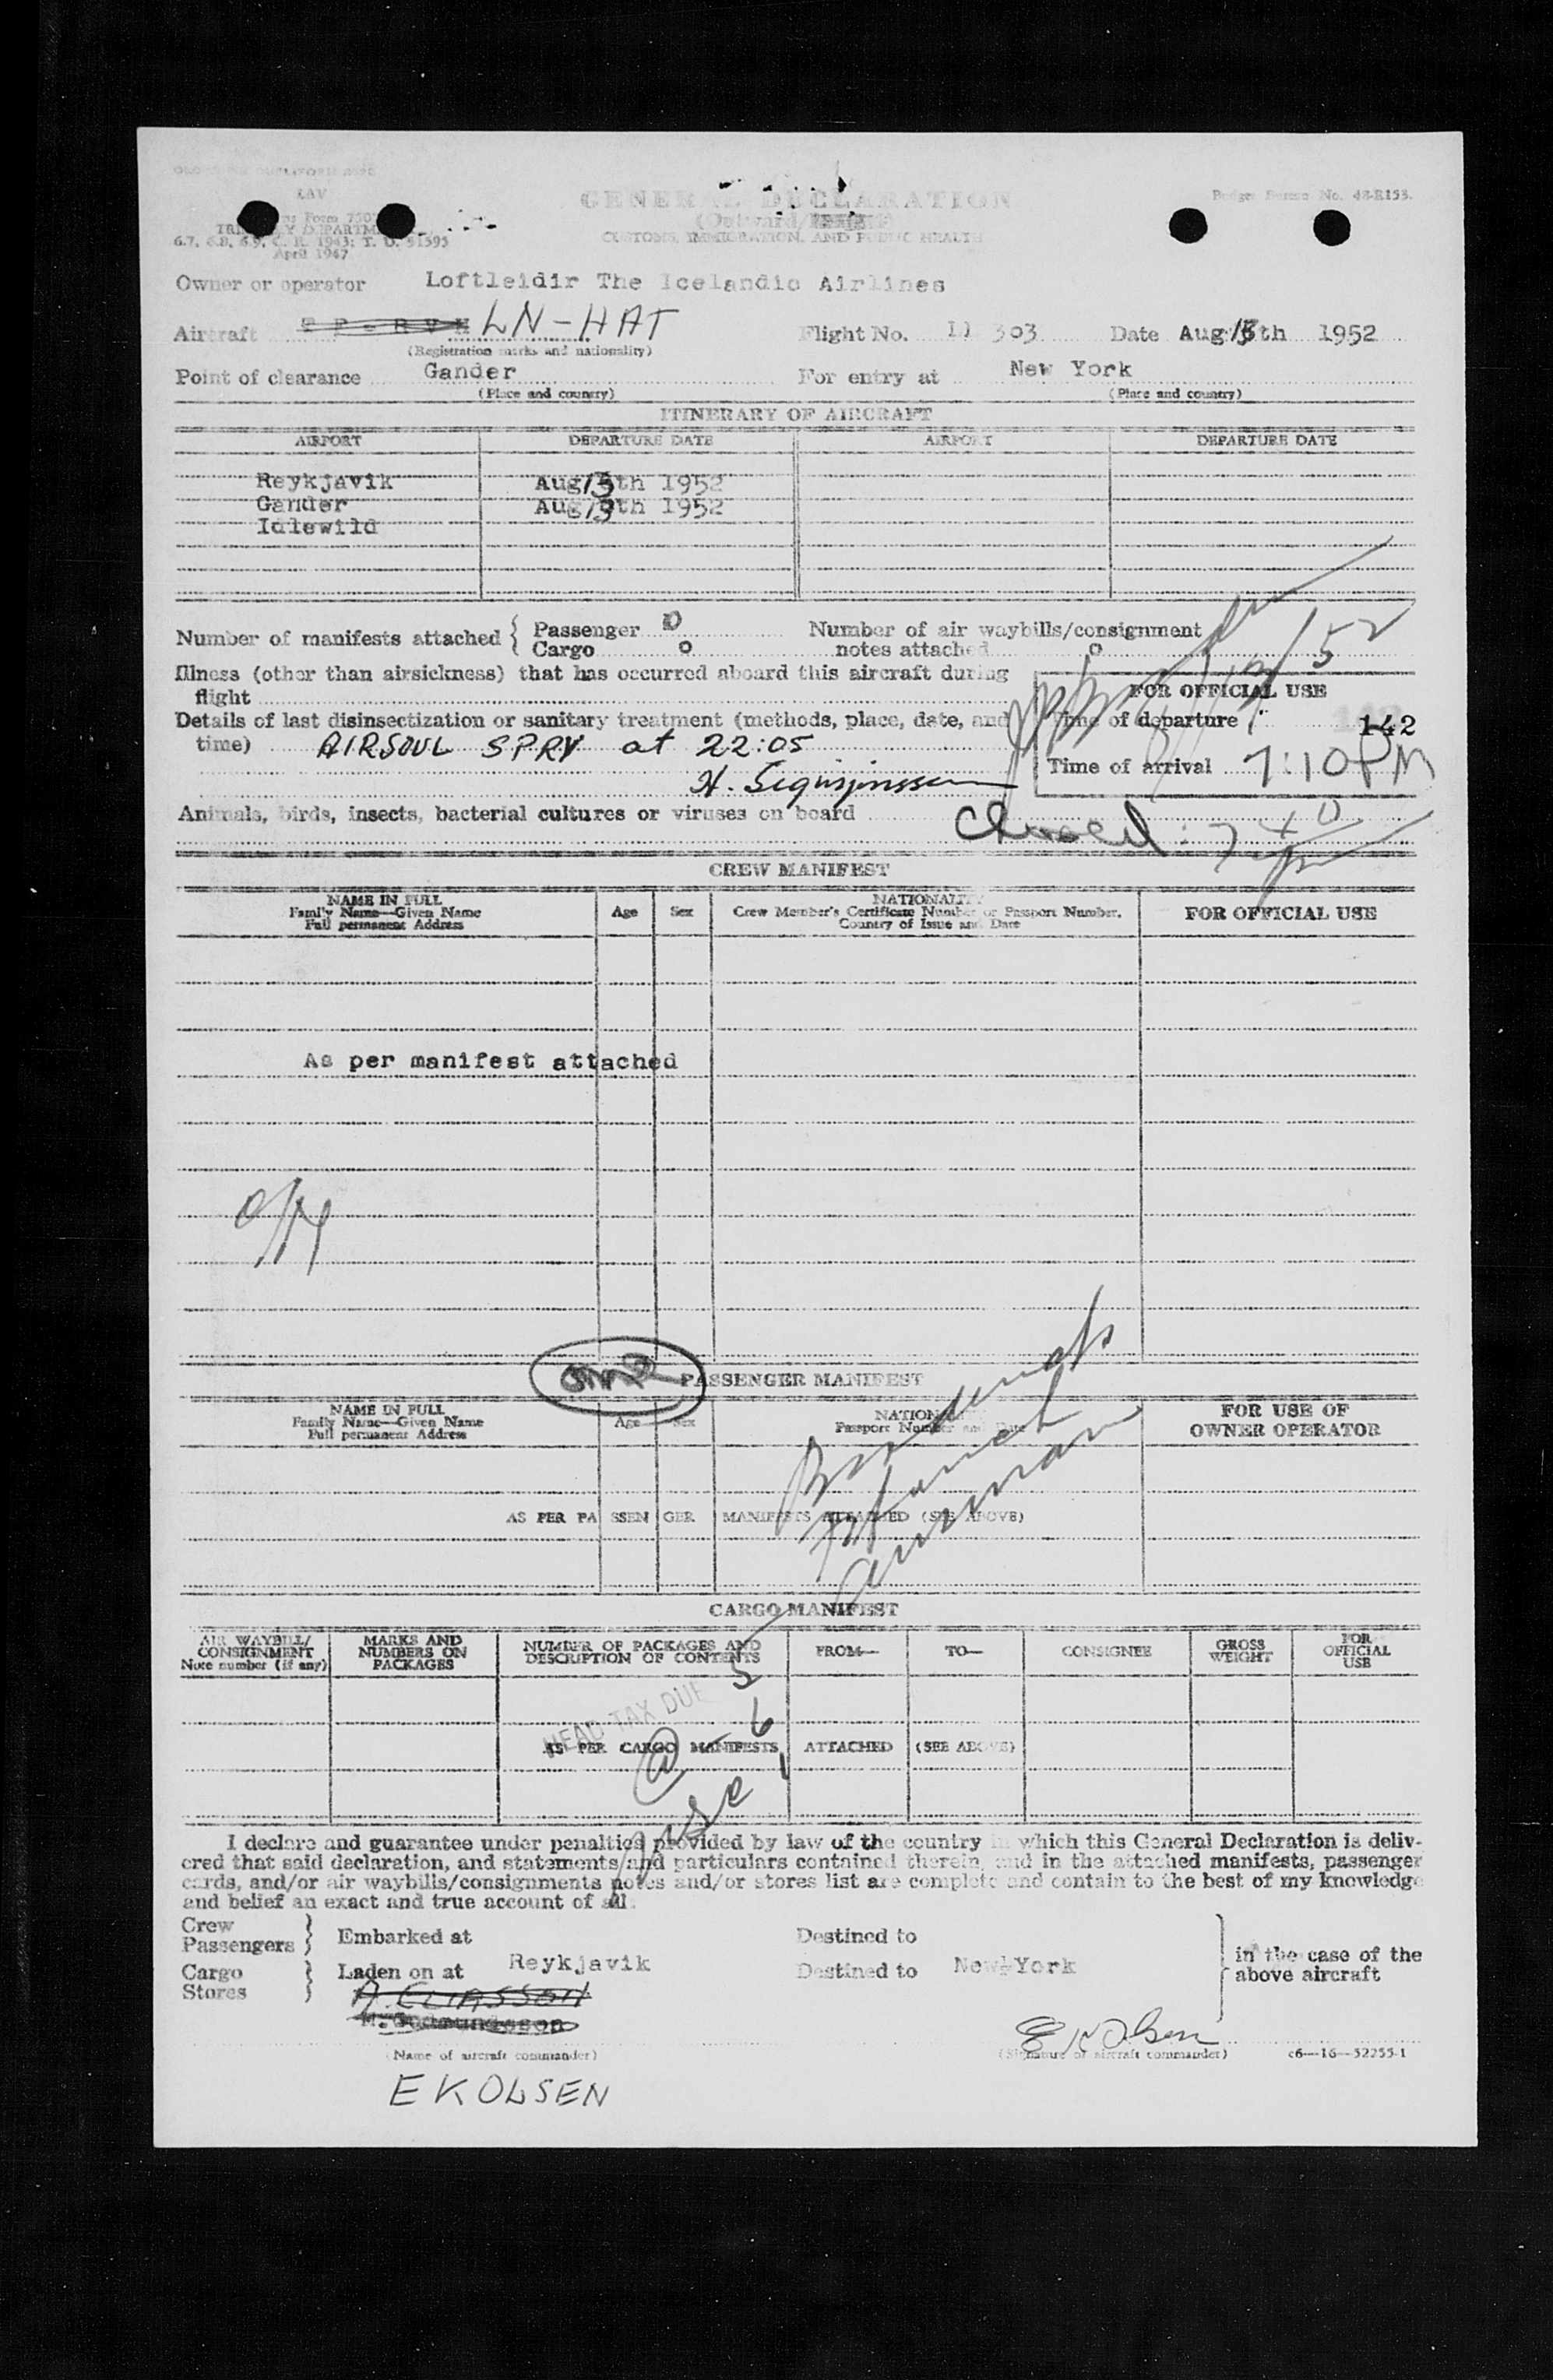 LAV
TREASURY DEPARTMENT
6.7, 6.8, 6.9, C. R. 1943; T. D. 51595
April 1947
GENERAL DECLARATION
(Outward/
CUSTOMS, IMMIGRATION, AND PUBLIC HEALTH
Budget Bureau No. 48-R153.
Owner or operator Loftleidir The Icelandic Airlines
Aircraft LN-HAT Flight No. 303 Date Aug 15th 1952
(Registration marks and nationality)
Point of clearance Gander For entry at New York
(Place and country) (Place and country)
ITINERARY OF AIRCRAFT
AIRPORT DEPARTURE DATE AIRPORT DEPARTURE DATE
Reykjavik Aug 15th 1952
Gander Aug 15th 1952
Idlewild
Number of manifests attached { Passenger 0 Number of air waybills/consignment
Cargo 0 notes attached 0
Illness (other than airsickness) that has occurred aboard this aircraft during
flight
FOR OFFICIAL USE
Details of last disinsectization or sanitary treatment (methods, place, date, and Time of departure 142
time) AIRSOUL SPRY at 22:05
Time of arrival 7:10 PM
Animals, birds, insects, bacterial cultures or viruses on board
CREW MANIFEST
NAME IN FULL
Family Name—Given Name
Full permanent Address
Age Sex
NATIONALITY
Crew Member's Certificate Number or Passport Number,
Country of Issue and Date
FOR OFFICIAL USE
As per manifest attached
PASSENGER MANIFEST
NAME IN FULL
Family Name—Given Name
Full permanent Address
Age Sex
NATIONALITY
Passport Number and Date
FOR USE OF
OWNER OPERATOR
AS PER PASSENGER MANIFESTS ATTACHED (SEE ABOVE)
CARGO MANIFEST
AIR WAYBILL/
CONSIGNMENT
Note number (if any)
MARKS AND
NUMBERS ON
PACKAGES
NUMBER OF PACKAGES AND
DESCRIPTION OF CONTENTS
FROM— TO— CONSIGNEE
GROSS
WEIGHT
FOR
OFFICIAL
USE
HEAD TAX DUE
AS PER CARGO MANIFESTS ATTACHED (SEE ABOVE)
I declare and guarantee under penalties provided by law of the country in which this General Declaration is deliv-
ered that said declaration, and statements and particulars contained therein, and in the attached manifests, passenger
cards, and/or air waybills/consignments notes and/or stores list are complete and contain to the best of my knowledge
and belief an exact and true account of all.
Crew
Passengers } Embarked at Destined to
Cargo
Stores } Laden on at Reykjavik Destined to New York
in the case of the
above aircraft
A. ELIASSON
(Name of aircraft commander) (Signature of aircraft commander) c6—16—52255-1
E K OLSEN